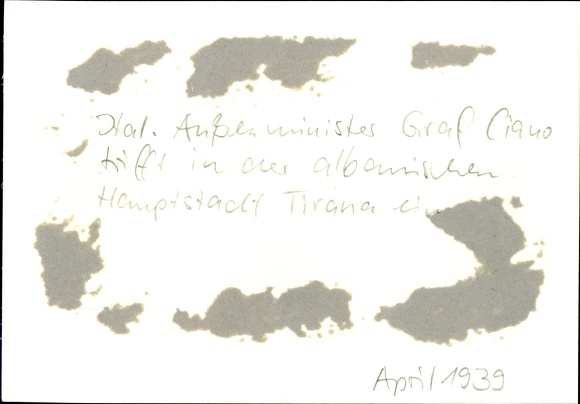 Ital. Außenminister Graf Ciano
trifft in der albanischen
Hauptstadt Tirana ein
April 1939